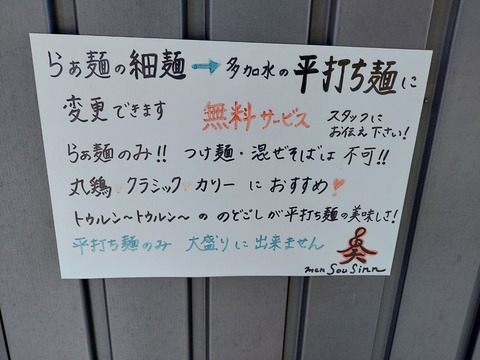 らぁ麺の細麺→多加水の平打ち麺に
変更できます 無料サービス スタッフに
お伝え下さい!
らぁ麺のみ!! つけ麺・混ぜそばは 不可!!
丸鶏♥クラシック♥カリー に おすすめ♥
トゥルン〜トゥルン〜 の のどごし が 平打ち麺の美味しさ!
平打ち麺のみ 大盛り に 出来ません
men Sou Sinn